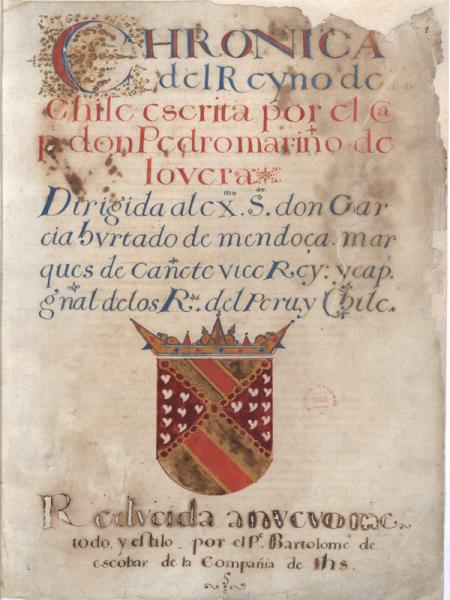 CHRONICA
del Reyno de
Chile escrita por el Ca
p. don Pedro mariño de
lovera
Dirigida al ex.mo S.or don Gar
cia hurtado de mendoça. mar
ques de cañete vice Rey: y cap.
gñal de los R.s del Peru, y Chile.
Reducida a nuevo me
todo, y estilo por el P.e Bartolome de
escobar de la Compañia de Ihs.